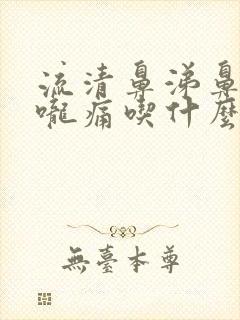 流清鼻涕鼻
嚨痛喫什麼
無臺本尊